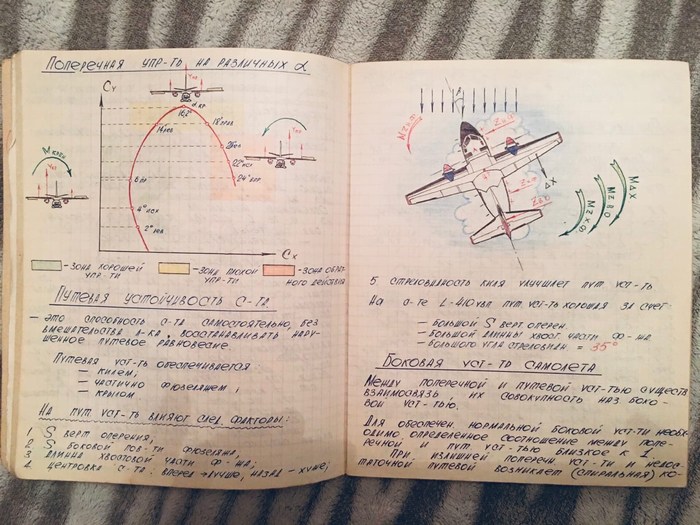 Поперечная упр-ть на различных α
Cy
Cx
αкр
14°
22°
24°
6°
4°
2°
- зона хорошей упр-ти
- зона плохой упр-ти
- зона обратного действия
Путевая устойчивость с-та
- это способность с-та самостоятельно, без
вмешательства л-ка, восстанавливать нару-
шенное путевое равновесие.
Путевая уст-ть обеспечивается:
- килем,
- частично фюзеляжем,
- крылом
На пут уст-ть влияют след. факторы:
1 S верт оперения,
2 S боковой пов-ти фюзеляжа,
3 длинна хвостовой части ф-жа;
4. центровка с-та: вперед → лучше, назад – хуже;
ΔX
MΔX
5 стреловидность киля улучшает пут уст-ть
На с-те L-410увп пут. уст-ть хорошая за счет
- большой S верт оперен.
- большой длинны хвост. части ф-жа
- большого угла стреловидн. = 35°
Боковая уст-ть самолета
Между поперечной и путевой уст-тью существ
взаимосвязь, их совокупность наз боко-
вой уст-тью.
Для обеспечен. нормальной боковой уст-ти необхо-
димо определенное соотношение между попе-
речной и пут уст-тью близкое к 1.
При излишней поперечн уст-ти и недос-
таточной путевой возникает (спиральная) ко-